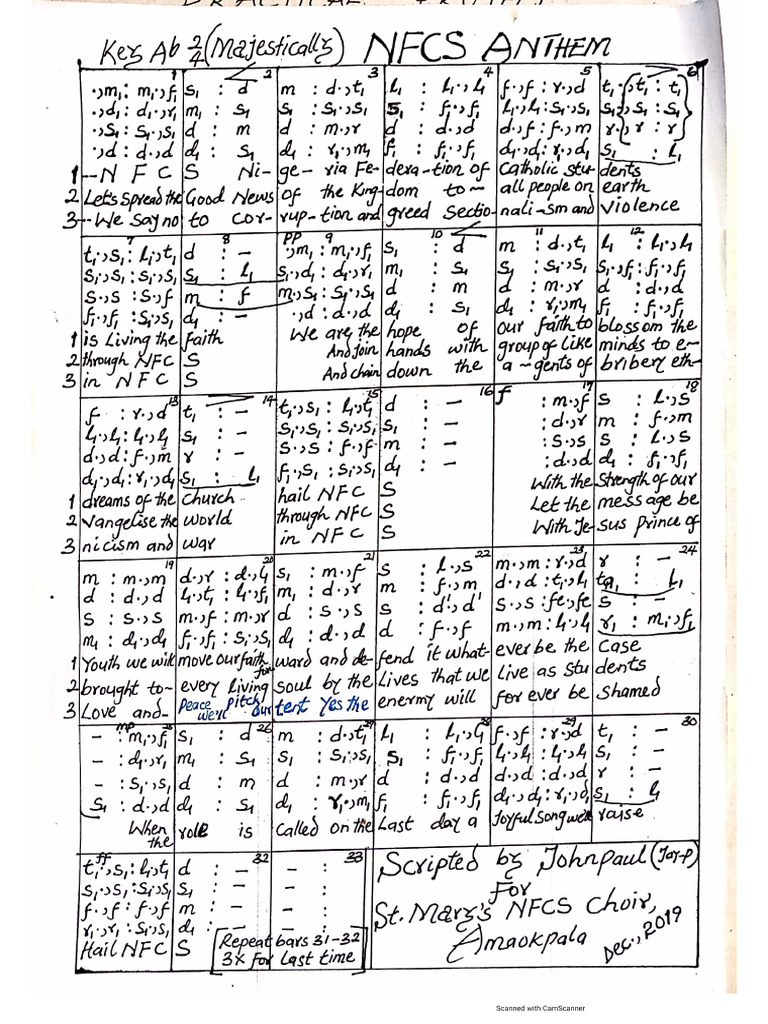 Key Ab 2/4 (Majestically) NFCS ANTHEM
1 2 3 4 5 6
.,m₁ : m₁.,f₁ | s₁ : d | m : d.,t₁ | l₁ : l₁.,l₁ | f.,f : r.,d | t₁.,t₁ : t₁
.,d₁ : d₁.,r₁ | m₁ : s₁ | s₁ : s₁.,s₁ | s₁ : f₁.,f₁ | l₁.,l₁ : s₁.,s₁ | s₁.,s₁ : s₁
.,s₁ : s₁.,s₁ | d : m | d : m.,r | d : d.,d | d.,f : f.,m | r.,r : r
.,d : d.,d | d₁ : s₁ | d₁ : r₁.,m₁ | f₁ : f₁.,f₁ | d₁.,d₁ : r₁.,d₁ | s₁ : l₁
1 --N F C S Ni- ge- ria Fe- dera-tion of Catholic stu- dents
2 Let's spread the Good News of the King- dom to~ all people on earth
3 -- We say no to cor- rup-tion and greed Sectio- nali-sm and violence
7 8 pp 9 10 11 12
t₁.,s₁ : l₁.,t₁ | d : - | .,m₁ : m₁.,f₁ | s₁ : d | m : d.,t₁ | l₁ : l₁.,l₁
s₁.,s₁ : s₁.,s₁ | s₁ : l₁ | s₁.,d₁ : d₁.,r₁ | m₁ : s₁ | s₁ : s₁.,s₁ | s₁.,f₁ : f₁.,f₁
s.,s : s.,f | m : f | m.,s₁ : s₁.,s₁ | d : m | d : m.,r | d : d.,d
f₁.,f₁ : s₁.,s₁ | d₁ : - | .,d : d.,d | d₁ : s₁ | d₁ : r₁.,m₁ | f₁ : f₁.,f₁
1 is Living the faith We are the hope of our faith to blossom the
2 through NFC S And join hands with group of like minds to e-
3 in NFC S And chain down the a~gents of bribery eth-
13 14 15 16 f 17 18
f : r.,d | t₁ : - | t₁.,s₁ : l₁.,t₁ | d : - | : m.,f | s : l.,s
l₁.,l₁ : l₁.,l₁ | s₁ : - | s₁.,s₁ : s₁.,s₁ | s₁ : - | : d.,r | m : f.,m
d.,d : f.,m | r : - | s.,s : f.,f | m : - | : s.,s | s : l.,s
d₁.,d₁ : r₁.,d₁ | s₁ : l₁ | f₁.,s₁ : s₁.,s₁ | d₁ : - | : d.,d | d₁ : f₁.,f₁
1 dreams of the church hail NFC S With the Strength of our
2 Vangelise the world through NFC S Let the message be
3 nicism and war in NFC S With Je- sus prince of
19 20 21 22 23 24
m : m.,m | d.,r : d.,l₁ | s₁ : m.,f | s : l.,s | m.,m : r.,d | r : -
d : d.,d | l₁.,t₁ : l₁.,f₁ | m₁ : d.,r | m : f.,m | d.,d : t₁.,l₁ | ta₁ : l₁
s : s.,s | m.,f : m.,r | d : s.,s | s : d'.,d' | s.,s : fe.,fe | s : -
m₁ : d₁.,d₁ | f₁.,f₁ : s₁.,s₁ | d₁ : d.,d | d : f.,f | m.,m : l₁.,l₁ | r₁ : m₁.,f₁
1 Youth we will move our faith for ward and de- fend it what- ever be the Case
2 brought to- every living soul by the Lives that we live as stu dents
3 Love and- Peace we'll pitch our tent Yes the enemy will for ever be shamed
mp 25 26 27 28 29 30
- : m₁.,f₁ | s₁ : d | m : d.,t₁ | l₁ : l₁.,l₁ | f.,f : r.,d | t₁ : -
- : d₁.,r₁ | m₁ : s₁ | s₁ : s₁.,s₁ | s₁ : f₁.,f₁ | l₁.,l₁ : l₁.,l₁ | s₁ : -
- : s₁.,s₁ | d : m | d : m.,r | d : d.,d | d.,d : d.,d | r : -
s₁ : d.,d | d₁ : s₁ | d₁ : r₁.,m₁ | f₁ : f₁.,f₁ | d₁.,d₁ : r₁.,d₁ | s₁ : l₁
When the role is called on the Last day a Joyful song we'll raise
ff 32 33
t₁.,s₁ : l₁.,t₁ | d : - | - :
s₁.,s₁ : s₁.,s₁ | s₁ : - | - :
f.,f : f.,f | m : - | - :
r₁.,r₁ : s₁.,s₁ | d₁ : - | - :
Hail NFC S [Repeat bars 31-32
3x for last time]
Scripted by Johnpaul (Jay-p)
For
St. Mary's NFCS Choir,
Amaokpala
Dec., 2019
Scanned with CamScanner